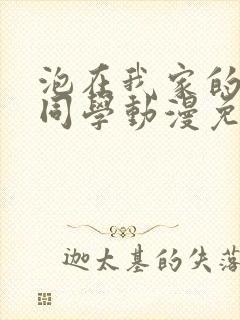 泡在我家的
同學動漫免
迦太基的失落